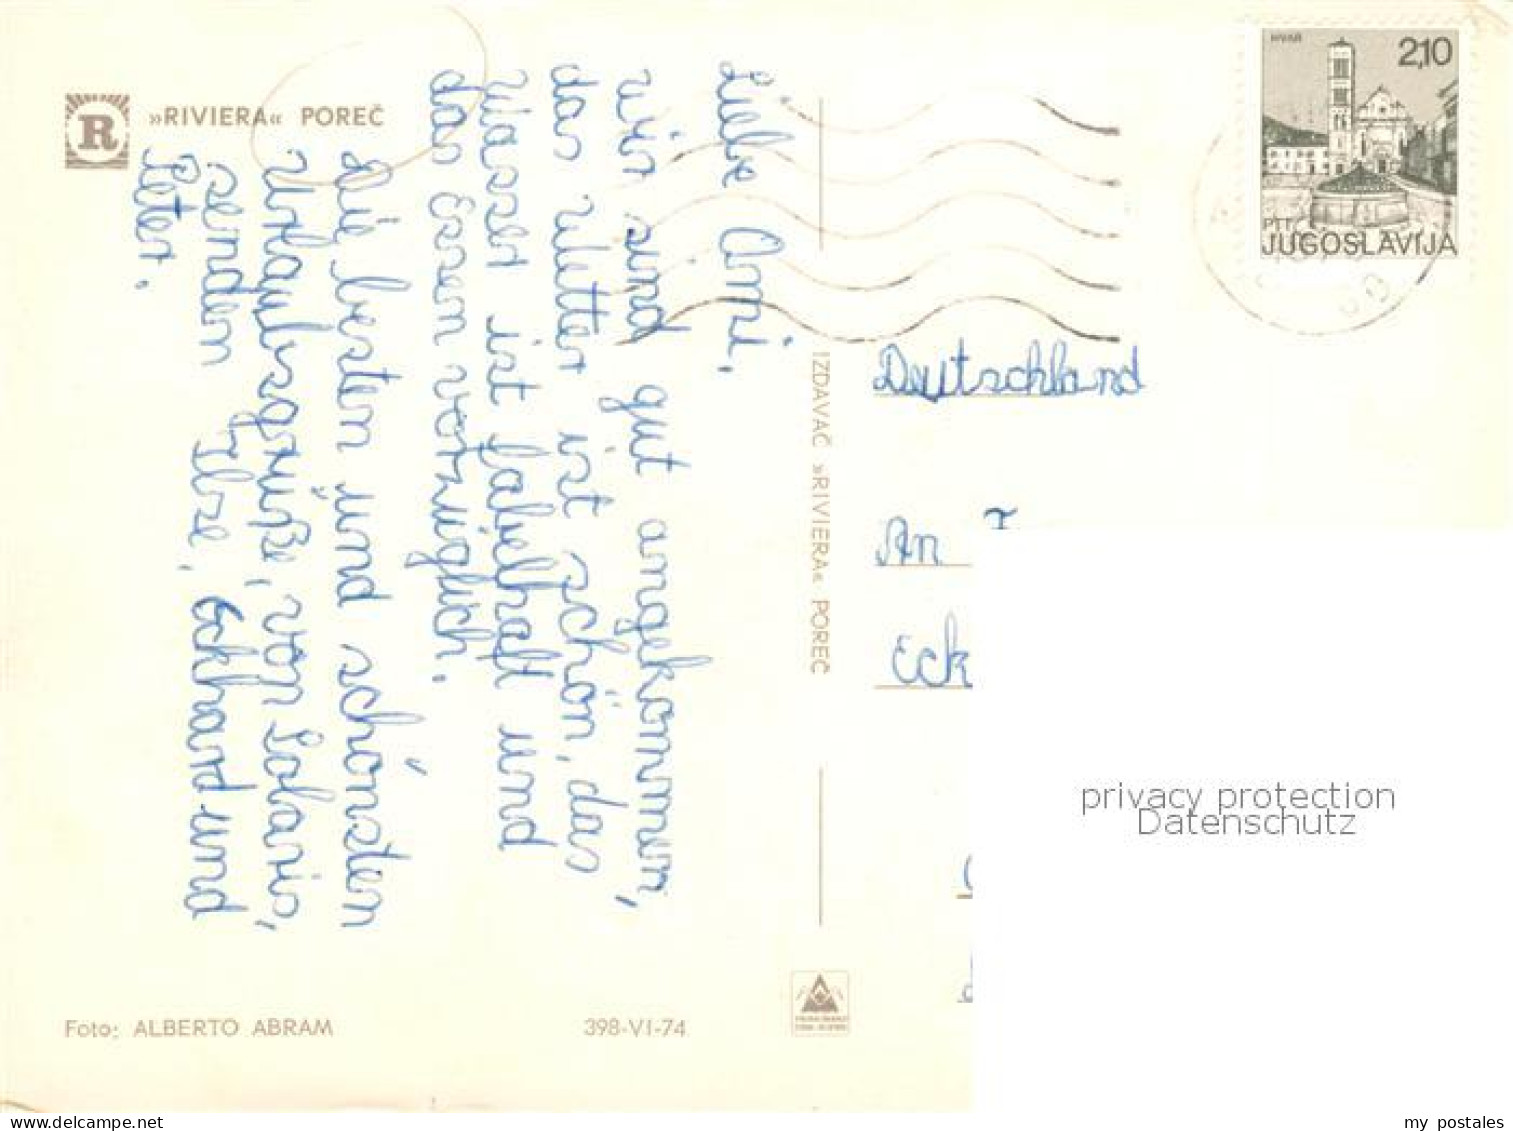 »RIVIERA« POREČ
R
Liebe Omi.
wir sind gut angekommen,
das Wetter ist schön, das
Wasser ist fabelhaft und
das Essen vorzüglich.
Die besten und schönsten
Urlaubsgrüße, von Solaris,
senden Ilse, Eckhard und
Peter.
IZDAVAČ »RIVIERA« POREČ
HVAR
2,10
PTT
JUGOSLAVIJA
Deutschland
An
Eck
privacy protection
Datenschutz
Foto: ALBERTO ABRAM
398-VI-74
www.ansichtskarten-center.de
my postales